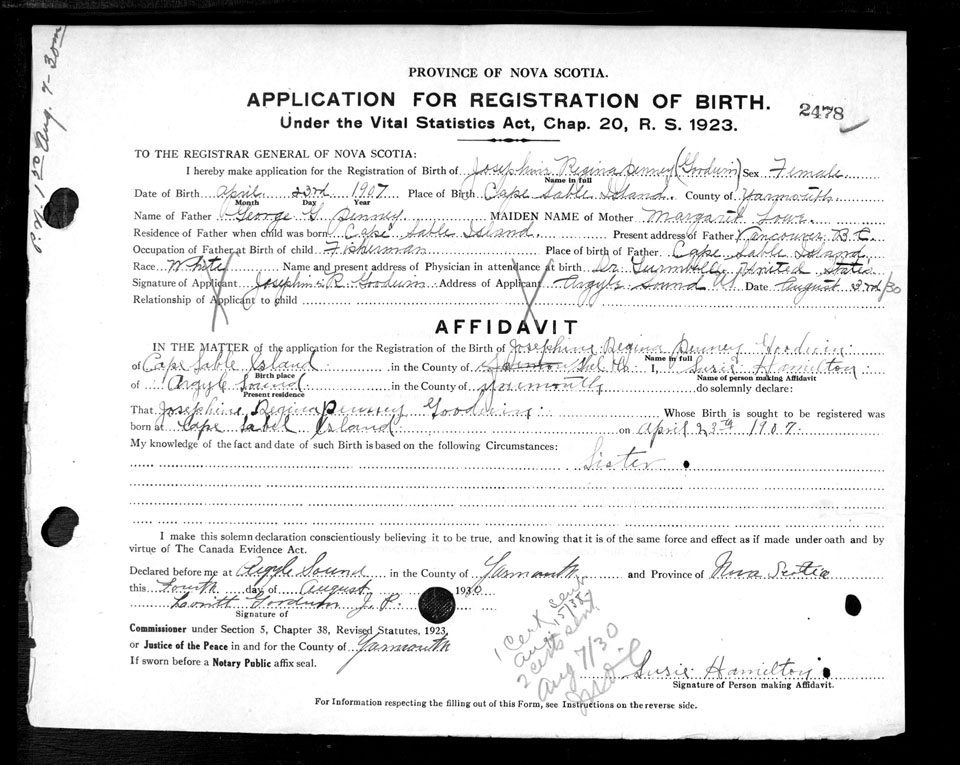 P.N. 1 50 Aug. 7-30
PROVINCE OF NOVA SCOTIA.
APPLICATION FOR REGISTRATION OF BIRTH.
2478
Under the Vital Statistics Act, Chap. 20, R. S. 1923.
TO THE REGISTRAR GENERAL OF NOVA SCOTIA:
I hereby make application for the Registration of Birth of Josephine Regina Denney (Goodwin) Sex Female
Name in full
Date of Birth April 23rd 1907 Place of Birth Cape Sable Island. County of Yarmouth
Month Day Year
Name of Father George G. Denney MAIDEN NAME of Mother Margaret Lowe.
Residence of Father when child was born Cape Sable Island. Present address of Father Vancouver B.C.
Occupation of Father at Birth of child Fisherman Place of birth of Father Cape Sable Island
Race White Name and present address of Physician in attendance at birth Dr Turnbull, United States
Signature of Applicant Josephine R. Goodwin Address of Applicant Argyle Sound Date August 3rd/30
Relationship of Applicant to child
AFFIDAVIT
IN THE MATTER of the application for the Registration of the Birth of Josephine Regina Denney Goodwin
Name in full
of Cape Sable Island in the County of Shel Co. I, Susie Hamilton
Birth place Name of person making Affidavit
of Argyle Sound in the County of Yarmouth do solemnly declare:
Present residence
That Josephine Regina Denney Goodwin Whose Birth is sought to be registered was
born at Cape Sabel Island on April 23rd 1907.
My knowledge of the fact and date of such Birth is based on the following Circumstances:
Sister
I make this solemn declaration conscientiously believing it to be true, and knowing that it is of the same force and effect as if made under oath and by
virtue of The Canada Evidence Act.
Declared before me at Argyle Sound in the County of Yarmouth and Province of Nova Scotia
this Fourth day of August 1930
Goodwin J. P.
Signature of
Commissioner under Section 5, Chapter 38, Revised Statutes, 1923,
or Justice of the Peace in and for the County of Yarmouth
If sworn before a Notary Public affix seal.
1 Cert sent
Aug 15/35
2 certs sent
Aug 7/30
Susie Hamilton
Signature of Person making Affidavit.
For Information respecting the filling out of this Form, see Instructions on the reverse side.